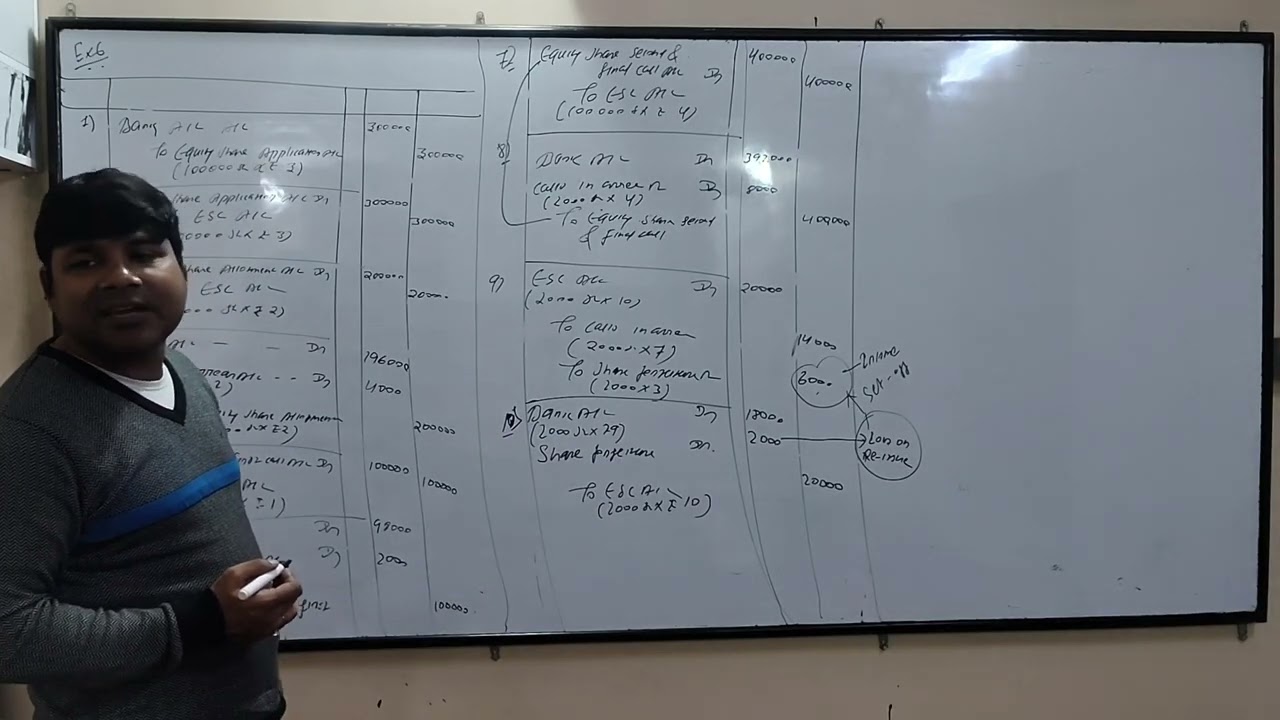 Ex6
1)
Bank A/C A/C 300000
To Equity Share Application A/C 300000
(100000 sh x ₹ 3)
Share Application A/C Dr 300000
ESC A/C 300000
sh x ₹ 3)
Share Allotment A/C Dr 200000
ESC A/C
sh x ₹ 2)
A/C — — Dr 196000
A/C - - Dr 4000
2)
Equity Share Allotment
x ₹2) 200000
call A/C Dr 100000
A/C 100000
x ₹ 1)
Dr 98000
Dr 2000
first 100000
7) Equity Share Second & 400000
final call A/C Dr
To ESC A/C 400000
(100000 sh x ₹ 4)
8) Bank A/C Dr 392000
Calls in arrear Dr 8000
(2000 sh x 4)
To Equity Share Second 400000
& final call
9) ESC A/C Dr 20000
(2000 sh x 10)
To Calls in arrear 14000
(2000 sh x 7)
To Share forfeiture 6000
(2000 x 3)
Income
Set-off
Bank A/C Dr 18000
(2000 sh x 9)
Share forfeiture Dr. 2000
Loss on
Re-issue
To ESC A/C 20000
(2000 sh x ₹ 10)